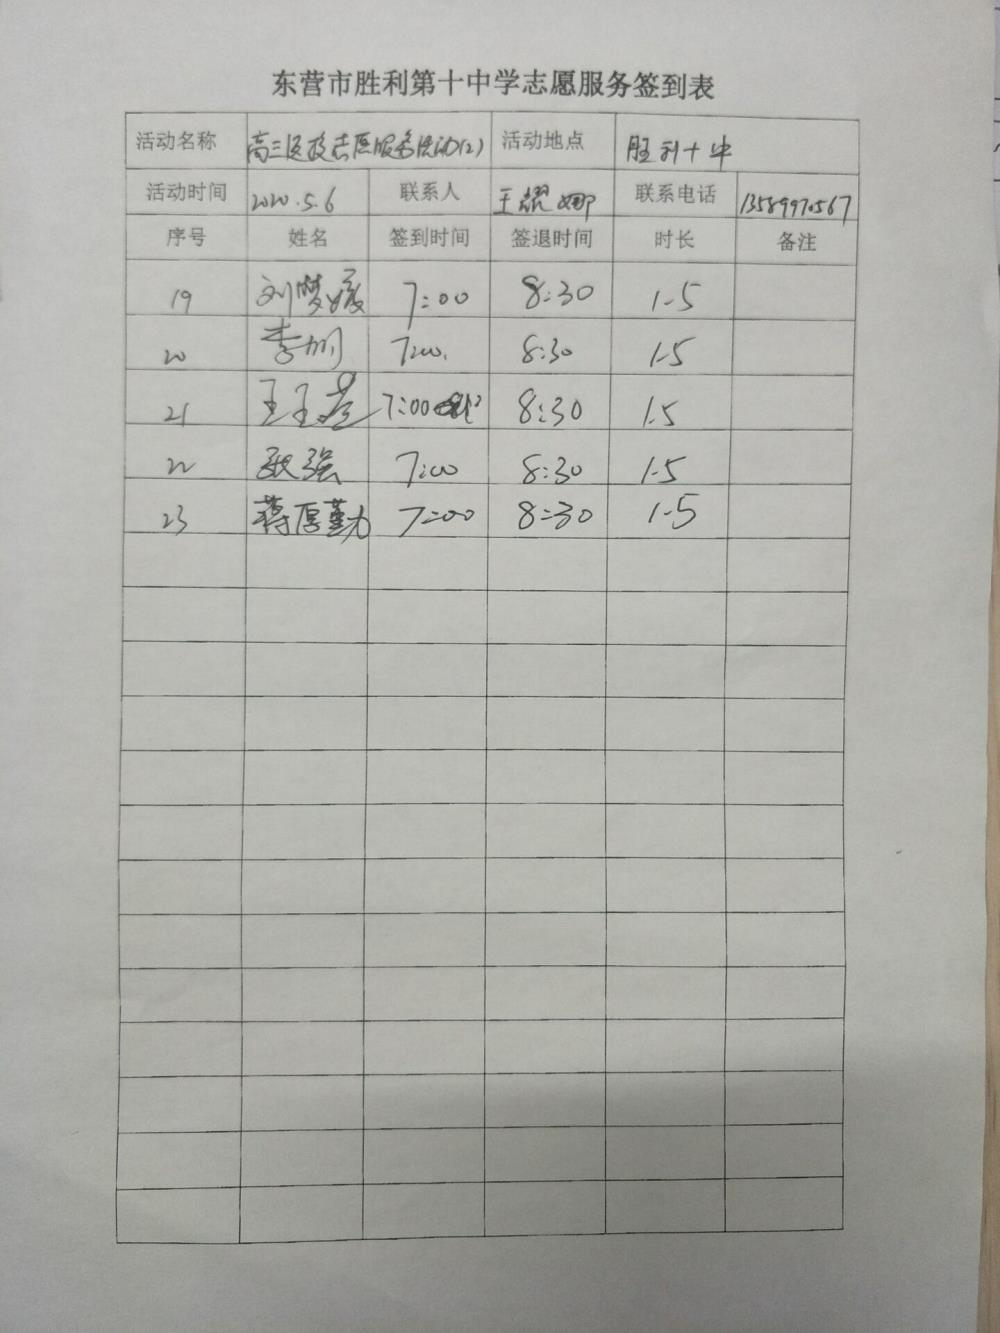 东营市胜利第十中学志愿服务签到表
活动名称 高三返校志愿服务活动(2) 活动地点 胜利十中
活动时间 2020.5.6 联系人 王耀娜 联系电话 13589970567
序号 姓名 签到时间 签退时间 时长 备注
19 刘梦媛 7:00 8:30 1.5
20 李 7:00 8:30 1.5
21 王玉 7:00 8:30 1.5
22 强 7:00 8:30 1.5
23 蒋厚勤 7:00 8:30 1.5